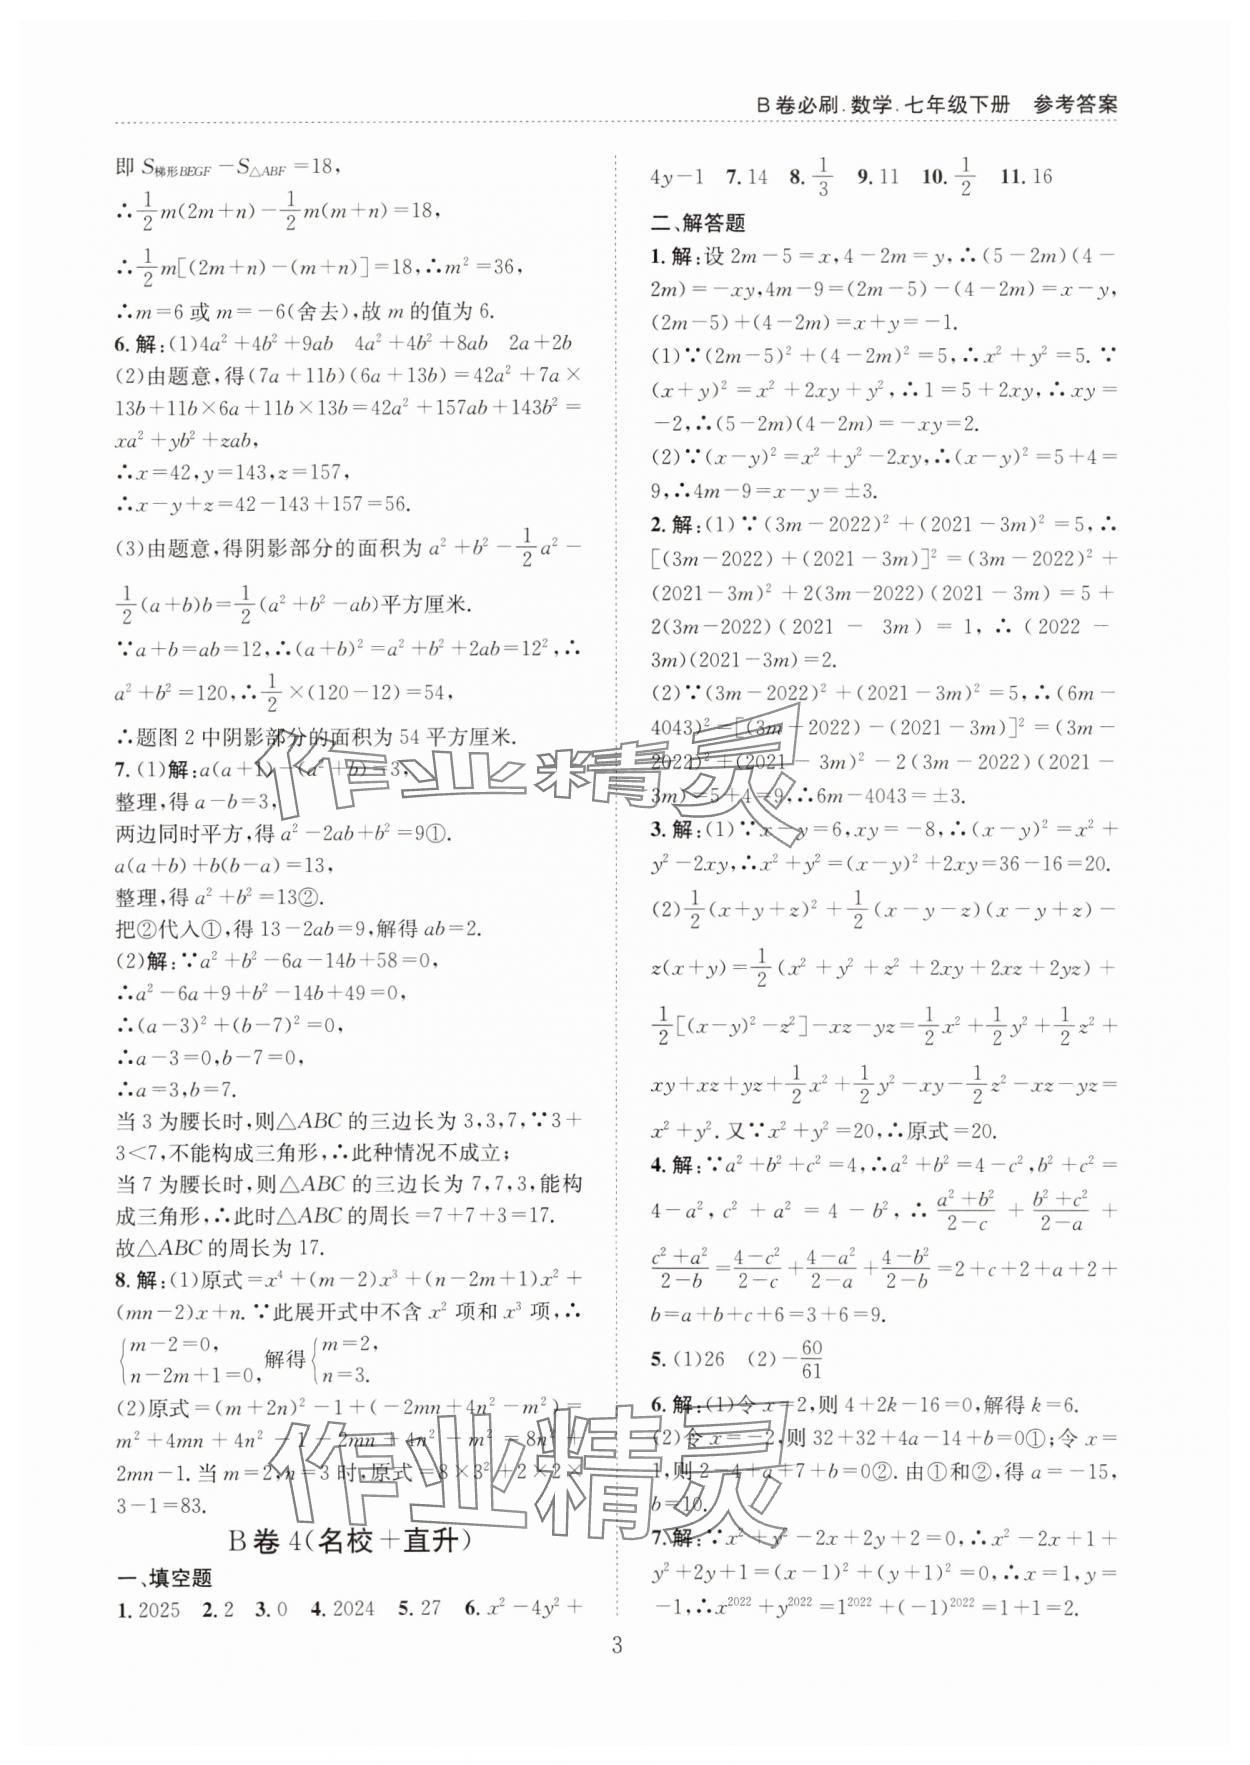 B卷必刷.数学.七年级下册 参考答案
即 S梯形BEGF－S△ABF＝18,
∴1/2m(2m＋n)－1/2m(m＋n)＝18,
∴1/2m[(2m＋n)－(m＋n)]＝18,∴m²＝36,
∴m＝6 或 m＝－6(舍去),故 m 的值为 6.
6.解:(1)4a²＋4b²＋9ab 4a²＋4b²＋8ab 2a＋2b
(2)由题意,得(7a＋11b)(6a＋13b)＝42a²＋7a×
13b＋11b×6a＋11b×13b＝42a²＋157ab＋143b²＝
xa²＋yb²＋zab,
∴x＝42,y＝143,z＝157,
∴x－y＋z＝42－143＋157＝56.
(3)由题意,得阴影部分的面积为 a²＋b²－1/2a²－
1/2(a＋b)b＝1/2(a²＋b²－ab)平方厘米.
∵a＋b＝ab＝12,∴(a＋b)²＝a²＋b²＋2ab＝12²,∴
a²＋b²＝120,∴1/2×(120－12)＝54,
∴题图 2 中阴影部分的面积为 54 平方厘米.
7.(1)解:a(a＋1)－(a²＋b)＝3,
整理,得 a－b＝3,
两边同时平方,得 a²－2ab＋b²＝9①.
a(a＋b)＋b(b－a)＝13,
整理,得 a²＋b²＝13②.
把②代入①,得 13－2ab＝9,解得 ab＝2.
(2)解:∵a²＋b²－6a－14b＋58＝0,
∴a²－6a＋9＋b²－14b＋49＝0,
∴(a－3)²＋(b－7)²＝0,
∴a－3＝0,b－7＝0,
∴a＝3,b＝7.
当 3 为腰长时,则△ABC 的三边长为 3,3,7,∵3＋
3<7,不能构成三角形,∴此种情况不成立;
当 7 为腰长时,则△ABC 的三边长为 7,7,3,能构
成三角形,∴此时△ABC 的周长＝7＋7＋3＝17.
故△ABC 的周长为 17.
8.解:(1)原式＝x⁴＋(m－2)x³＋(n－2m＋1)x²＋
(mn－2)x＋n.∵此展开式中不含 x² 项和 x³ 项,∴
{m－2＝0, n－2m＋1＝0, 解得{m＝2, n＝3.
(2)原式＝(m＋2n)²－1＋(－2mn＋4n²－m²)＝
m²＋4mn＋4n²－1－2mn＋4n²－m²＝8n²＋
2mn－1.当 m＝2,n＝3 时,原式＝8×3²＋2×2×
3－1＝83.
B 卷 4(名校＋直升)
一、填空题
1.2025 2.2 3.0 4.2024 5.27 6.x²－4y²＋
4y－1 7.14 8.1/3 9.11 10.1/2 11.16
二、解答题
1.解:设 2m－5＝x,4－2m＝y,∴(5－2m)(4－
2m)＝－xy,4m－9＝(2m－5)－(4－2m)＝x－y,
(2m－5)＋(4－2m)＝x＋y＝－1.
(1)∵(2m－5)²＋(4－2m)²＝5,∴x²＋y²＝5.∵
(x＋y)²＝x²＋2xy＋y²,∴1＝5＋2xy,∴xy＝
－2,∴(5－2m)(4－2m)＝－xy＝2.
(2)∵(x－y)²＝x²＋y²－2xy,∴(x－y)²＝5＋4＝
9,∴4m－9＝x－y＝±3.
2.解:(1)∵(3m－2022)²＋(2021－3m)²＝5,∴
[(3m－2022)＋(2021－3m)]²＝(3m－2022)²＋
(2021－3m)²＋2(3m－2022)(2021－3m)＝5＋
2(3m－2022)(2021－3m)＝1,∴(2022－
3m)(2021－3m)＝2.
(2)∵(3m－2022)²＋(2021－3m)²＝5,∴(6m－
4043)²＝[(3m－2022)－(2021－3m)]²＝(3m－
2022)²＋(2021－3m)²－2(3m－2022)(2021－
3m)＝5＋4＝9,∴6m－4043＝±3.
3.解:(1)∵x－y＝6,xy＝－8,∴(x－y)²＝x²＋
y²－2xy,∴x²＋y²＝(x－y)²＋2xy＝36－16＝20.
(2)1/2(x＋y＋z)²＋1/2(x－y－z)(x－y＋z)－
z(x＋y)＝1/2(x²＋y²＋z²＋2xy＋2xz＋2yz)＋
1/2[(x－y)²－z²]－xz－yz＝1/2x²＋1/2y²＋1/2z²＋
xy＋xz＋yz＋1/2x²＋1/2y²－xy－1/2z²－xz－yz＝
x²＋y².又∵x²＋y²＝20,∴原式＝20.
4.解:∵a²＋b²＋c²＝4,∴a²＋b²＝4－c²,b²＋c²＝
4－a²,c²＋a²＝4－b²,∴(a²＋b²)/(2－c)＋(b²＋c²)/(2－a)＋
(c²＋a²)/(2－b)＝(4－c²)/(2－c)＋(4－a²)/(2－a)＋(4－b²)/(2－b)＝2＋c＋2＋a＋2＋
b＝a＋b＋c＋6＝3＋6＝9.
5.(1)26 (2)－60/61
6.解:(1)令 x＝2,则 4＋2k－16＝0,解得 k＝6.
(2)令 x＝－2,则 32＋32＋4a－14＋b＝0①;令 x＝
1,则 2－4＋a＋7＋b＝0②.由①和②,得 a＝－15,
b＝10.
7.解:∵x²＋y²－2x＋2y＋2＝0,∴x²－2x＋1＋
y²＋2y＋1＝(x－1)²＋(y＋1)²＝0,∴x＝1,y＝
－1,∴x²⁰²²＋y²⁰²²＝1²⁰²²＋(－1)²⁰²²＝1＋1＝2.
3
作业精灵
作业精灵